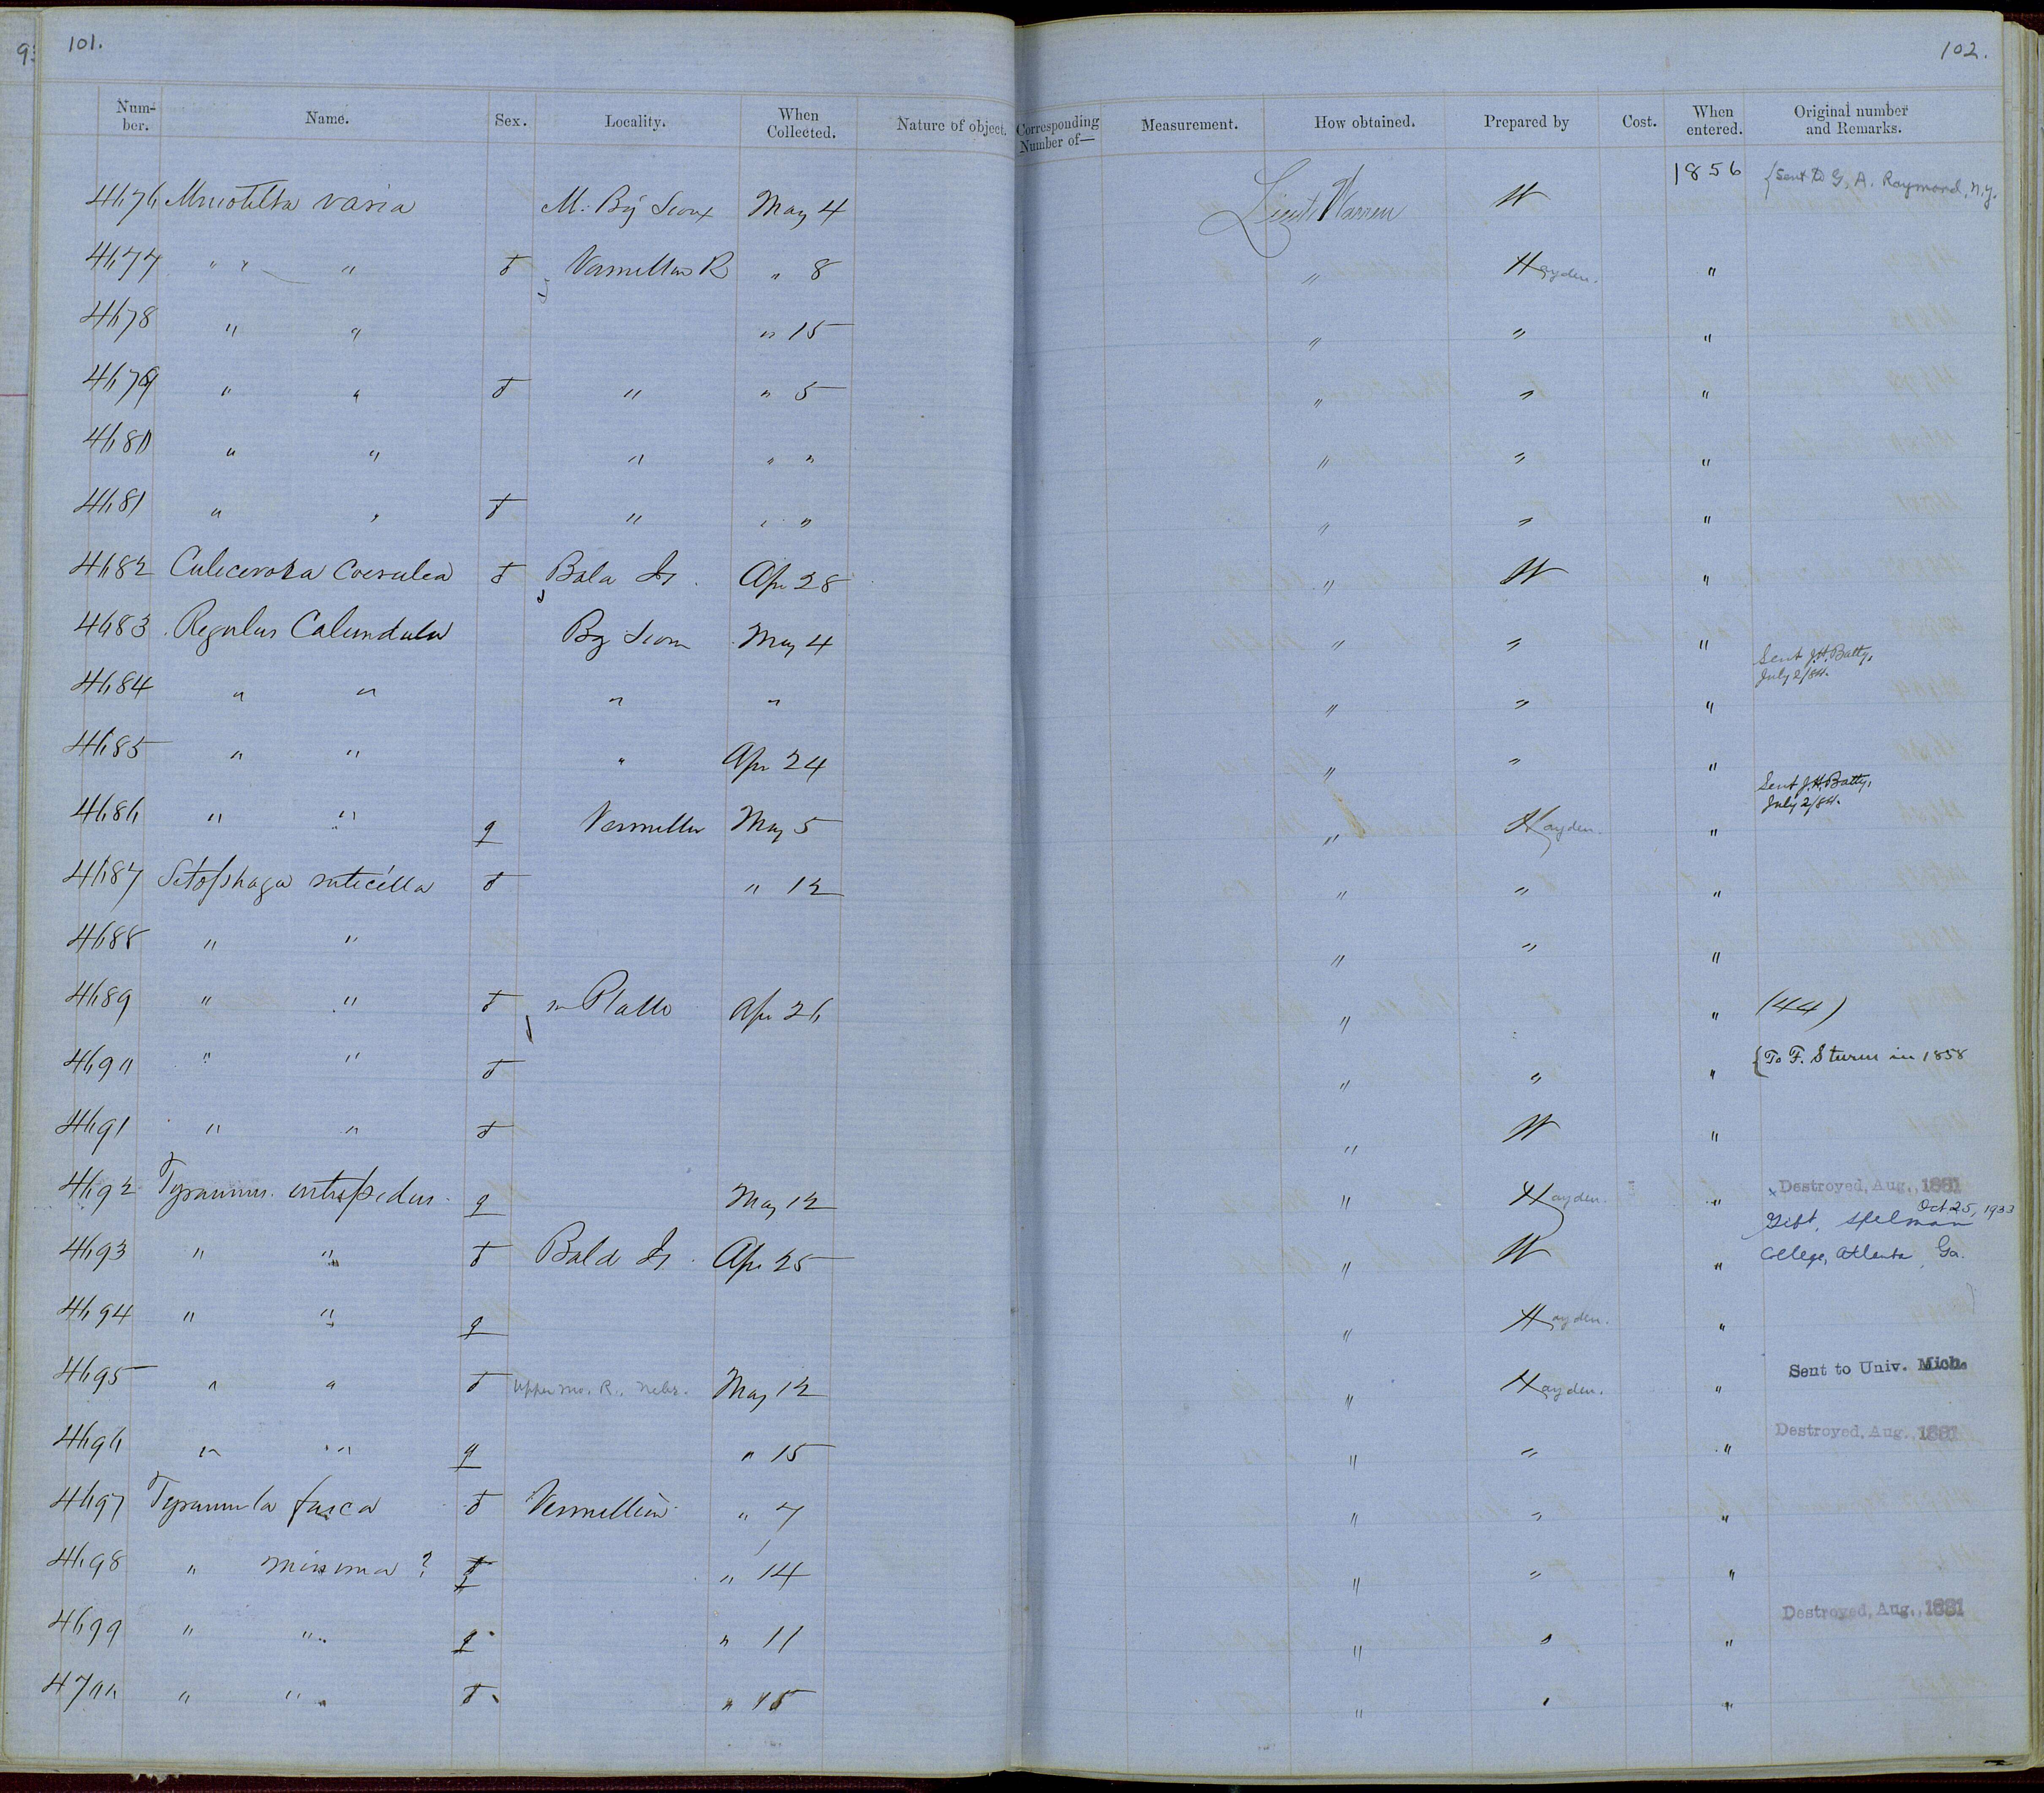 101.
102.
Num-ber. Name. Sex. Locality. When Collected. Nature of object. Corresponding Number of— Measurement. How obtained. Prepared by Cost. When entered. Original number and Remarks.
4676 Mniotilta varia M. Big Sioux May 4 Lieut. Warren W 1856 {Sent to G. A. Raymond, N.Y.
4677 " " " ♂ Vermillion R " 8 " Hayden. "
4678 " " " 15 " " "
4679 " " ♂ " " 5 " " "
4680 " " " " " " " "
4681 " " ♂ " " " " " "
4682 Culicivora Coerulea ♂ Bald Is. Apr 28 " W "
4683 Regulus Calendula Big Sioux May 4 " " "
4684 " " " " " " " Sent J.H. Batty, July 2/84.
4685 " " " Apr 24 " " "
4686 " " ♀ Vermillion May 5 " Hayden. " Sent J.H. Batty, July 2/84.
4687 Setophaga ruticilla ♂ " 12 " " "
4688 " " " " "
4689 " " ♂ m Platte Apr 26 " " (44)
4690 " " ♂ " " " {To F. Sturm in 1858
4691 " " ♂ " W "
4692 Tyrannus intrepidus ♀ May 12 " Hayden. " x Destroyed, Aug., 1881
4693 " " ♂ Bald Is. Apr 25 " W " Gift, Spelman Oct 25, 1933 College, Atlanta, Ga.
4694 " " ♀ " Hayden. "
4695 " " ♂ Upper Mo. R., Nebr. May 12 " Hayden. " Sent to Univ. Mich.
4696 " " ♀ " 15 " " " Destroyed, Aug., 1881
4697 Tyrannula fusca ♂ Vermillion " 7 " " "
4698 " minima ? " 14 " " "
4699 " " ♀ " 11 " " " Destroyed, Aug., 1881
4700 " " ♂ " 15 " " "